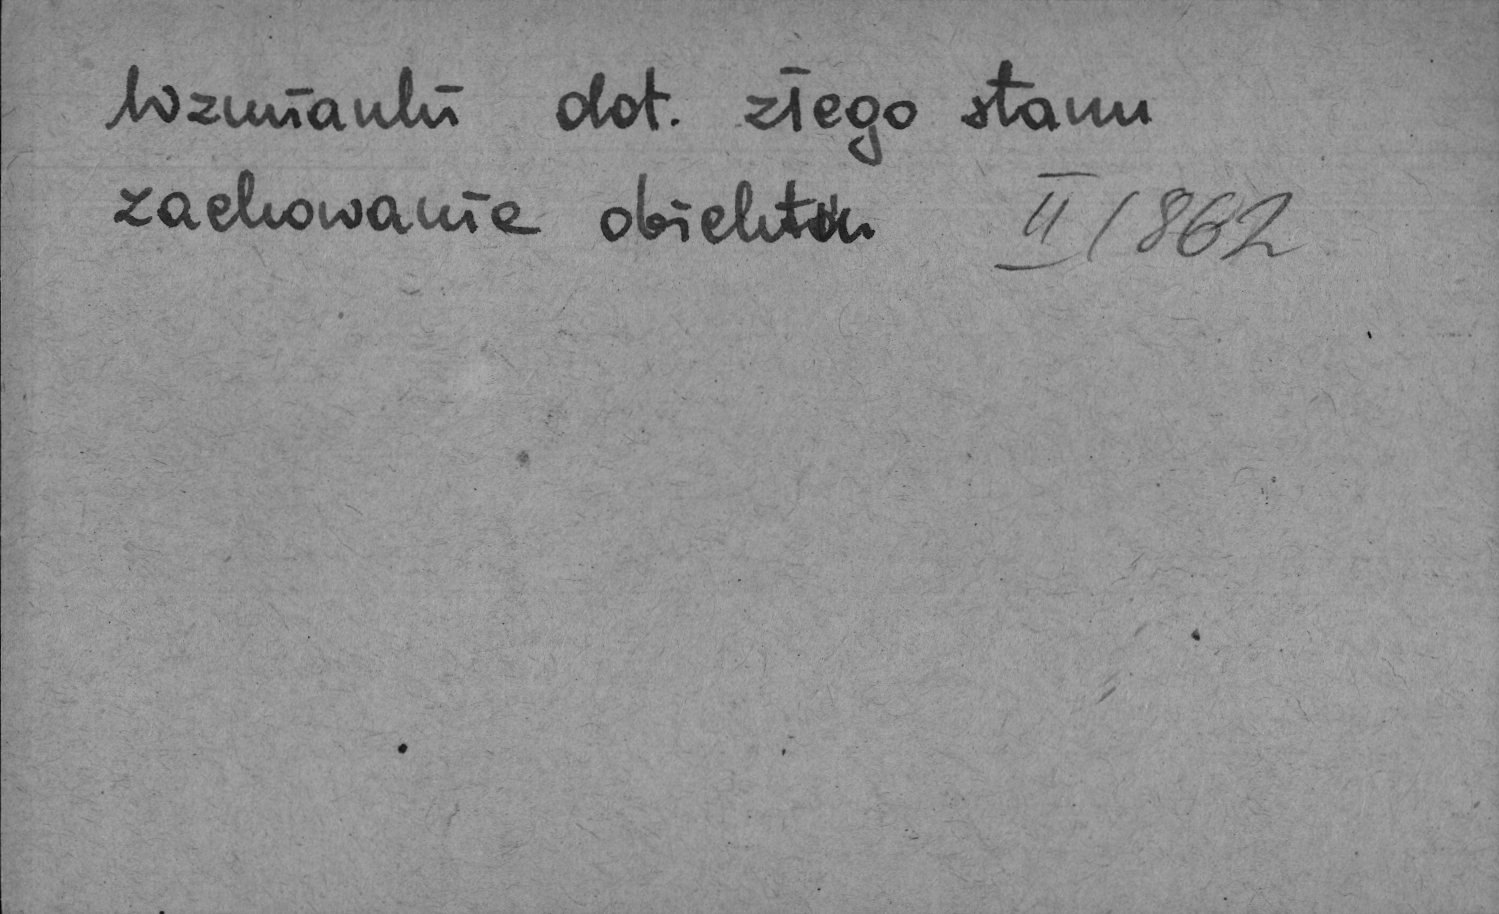 Wzmianki dot. złego stanu
zachowanie obiektu II/862